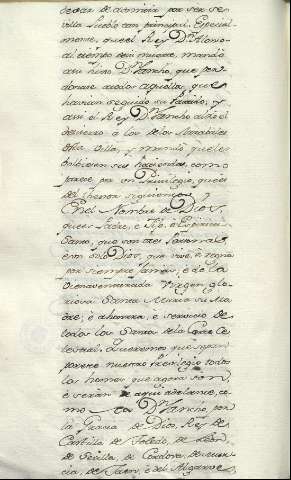 dexar de dominar por ser se-
villa Pueblo tan principal. Especial-
mente, que el Rey Dn. Alonso
al tiempo de su muerte, mandò
a su hijo Dn. Sancho, que per-
donase a todos aquellos, que
havian seguido su Partido, y
assi el Rey Dn. Sancho alzò el
destierro a los de los
dha Villa, y mandò que les
bolviesen sus haciendas, como
parece por un Privilegio, que es
del thenor siguiente
En el Nombre de Dios,
que es Padre, e Fijo, e Espiritu
Santo, que son tres Personas
en un solo Dios, que vive, e regna
por siempre jamas, e de la
Bienaventurada Virgen glo-
riosa Santa Maria su Ma-
dre, e a honrra, e servicio de
todos los Santos de la Corte Ce-
lestial. Queremos que sepan
por este nuestro Privilegio todos
los homes que agora son,
e seràn de aqui adelante, co-
mo Dn. Sancho, por
la Gracia de Dios, Rey de
Castilla, de Toledo, de Leon,
de Sevilla, de Cordova, de Mur-
cia, de Jaen, e del Algarve